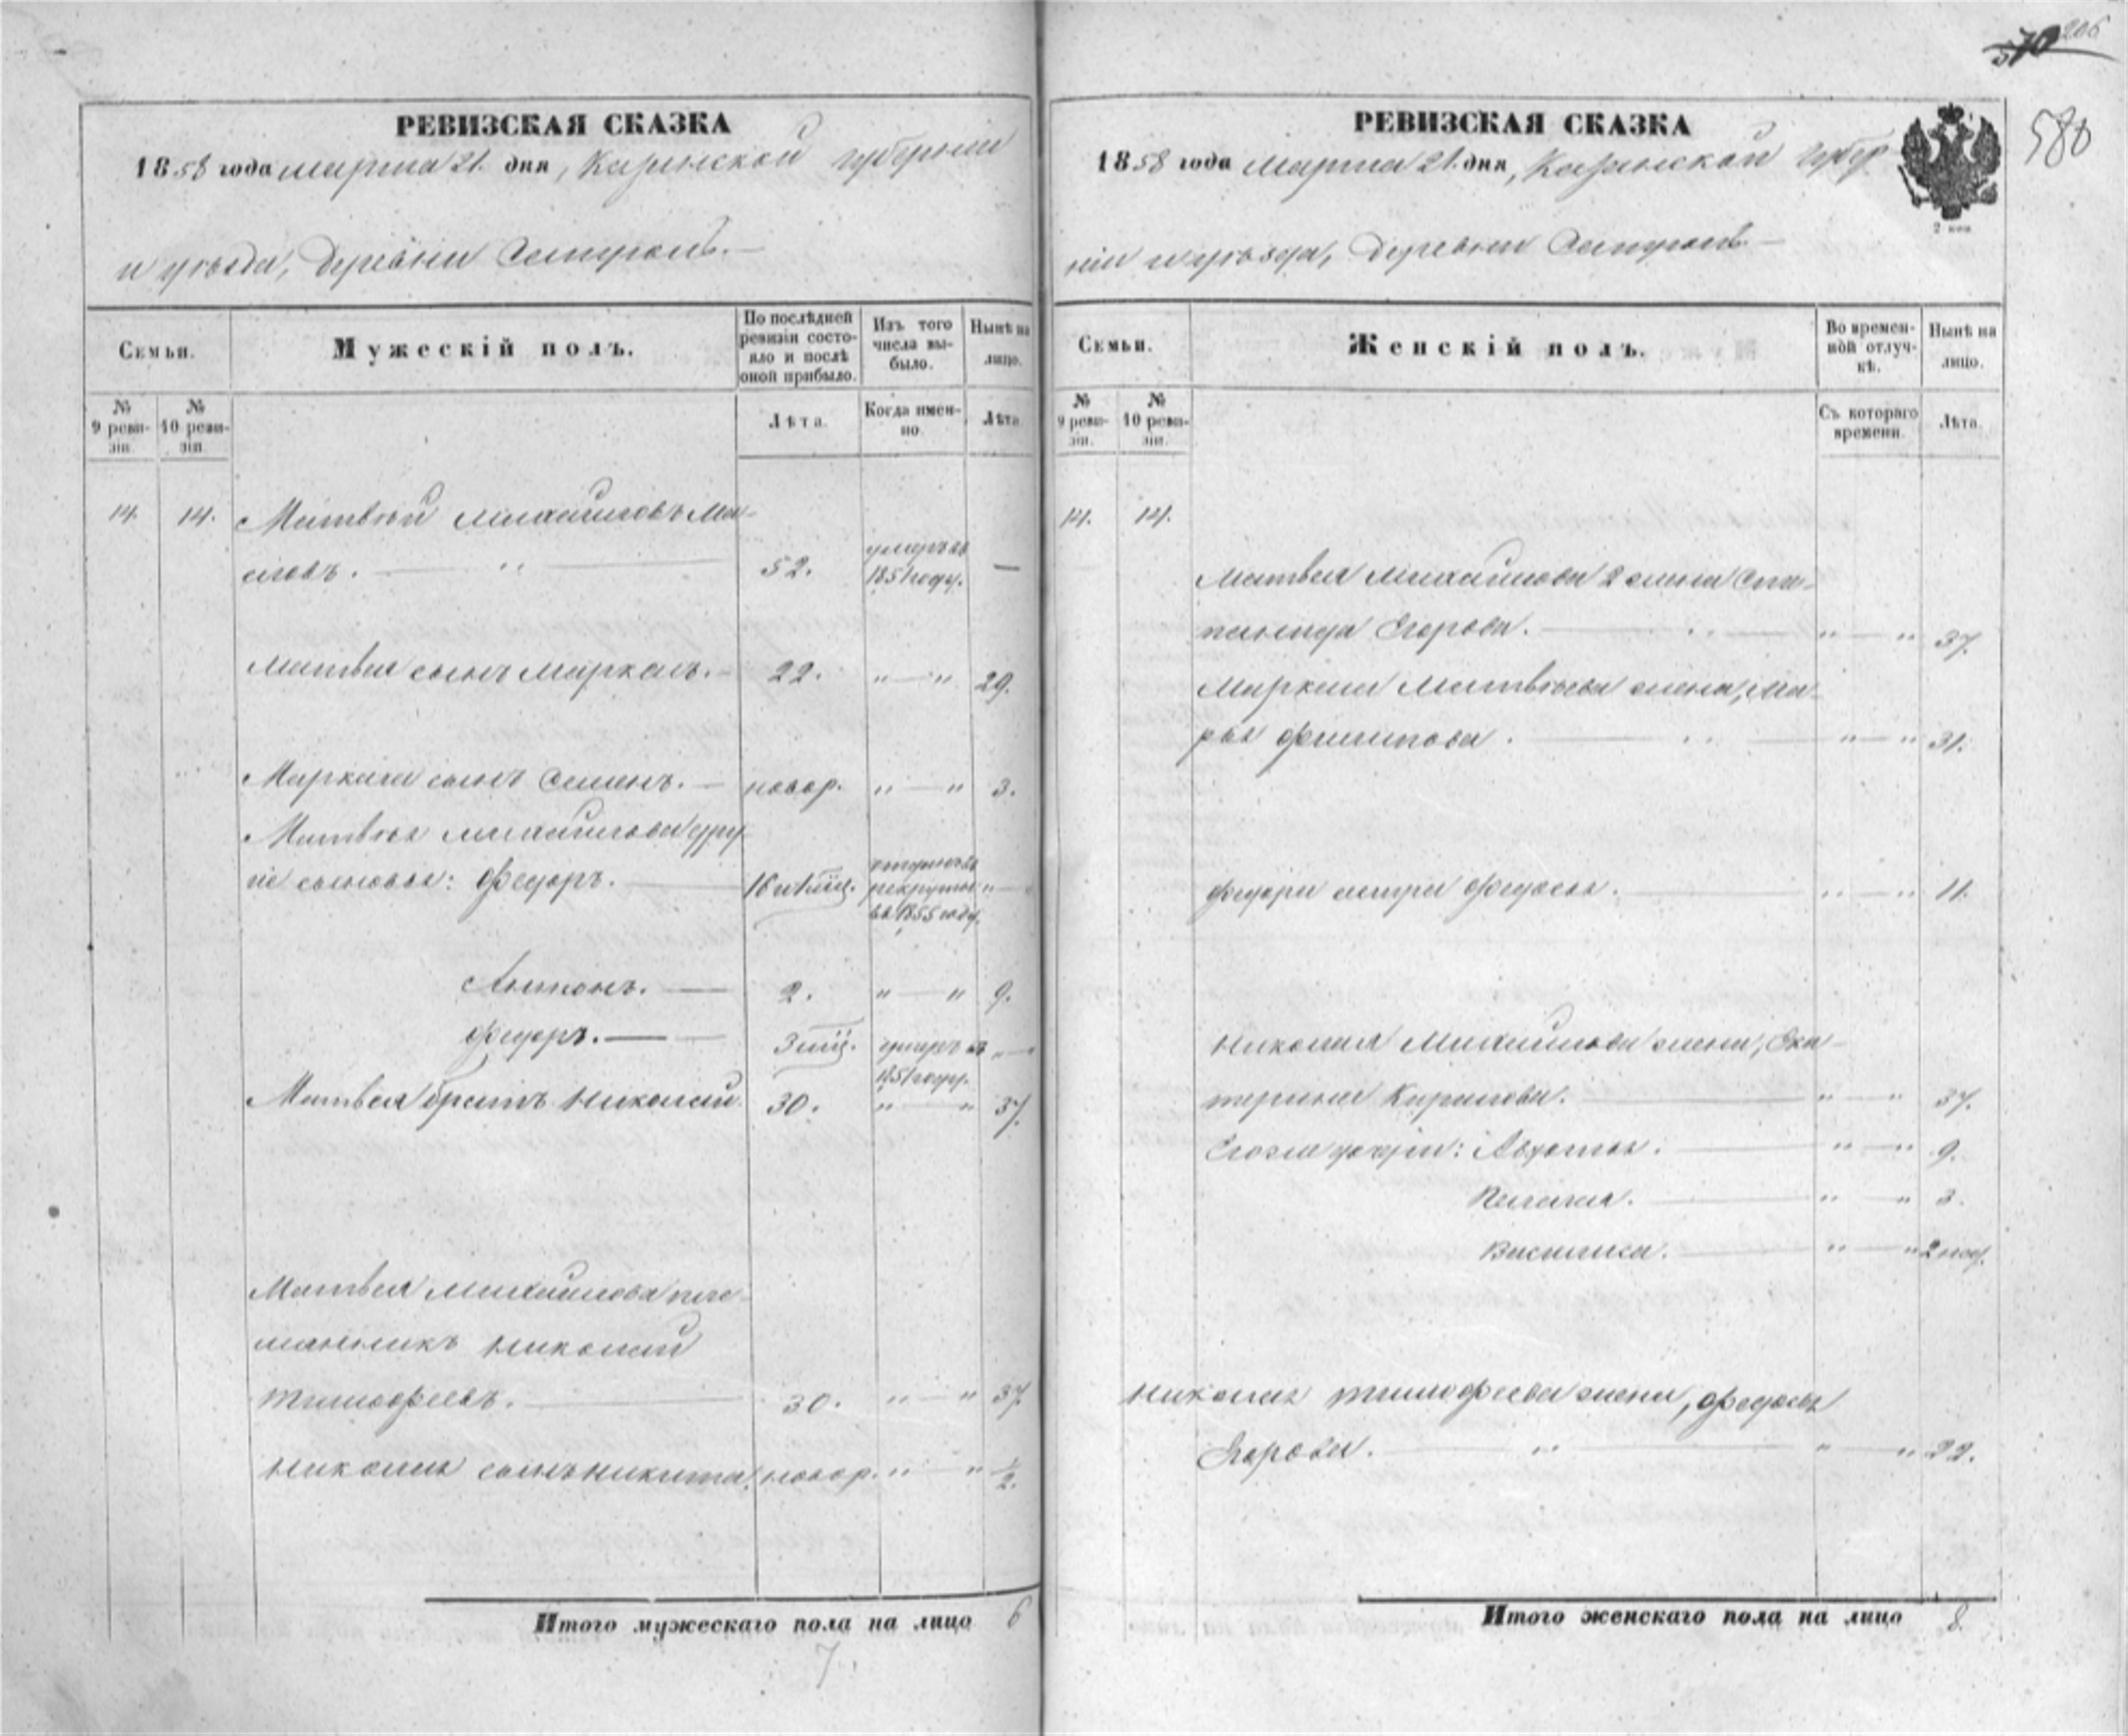 206
570
580
РЕВИЗСКАЯ СКАЗКА
1858 года марта 21. дня, Казанской губернии
и уезда, деревни
Семьи.
Мужескій полъ.
По послѣдней ревизіи состояло и послѣ оной прибыло.
Изъ того числа выбыло.
Нынѣ на лицо.
№ 9 ревизіи.
№ 10 ревизіи.
Лѣта.
Когда именно.
Лѣта.
14. 14. Матвѣй Михайловъ Ма-
52. умеръ въ 1851 году. —
Матвея сынъ Маркелъ. 22. „ — „ 29.
Маркела сынъ Семенъ. — новор. „ — „ 3.
Матвѣя Михайлова дру-
гіе сыновья: Федоръ. 16 отданъ въ рекруты въ 1855 году.
Антонъ. — 2. „ — „ 9.
Федоръ. — 3 умеръ въ 1851 году.
Матвея братъ Николай. 30. „ — „ 37.
Матвея Михайлова пле-
мянникъ Николай
Тимофеевъ. 30. „ — „ 37.
Николая сынъ Никита. новор. „ — „ 1/2.
Итого мужескаго пола на лицо 6
7
РЕВИЗСКАЯ СКАЗКА
1858 года Марта 21. дня, Казанской губер
ніи и уезда, деревни
2 коп.
Семьи.
Женскій полъ.
Во временной отлучкѣ.
Нынѣ на лицо.
№ 9 ревизіи.
№ 10 ревизіи.
Съ котораго времени.
Лѣта.
14. 14.
Матвея Михайлова 2 жена Сте-
панида Егорова. „ — „ 37.
Маркела Матвѣева жена, Ма-
рья Филипова. „ — „ 31.
Федора сестра Федосья. „ — „ 11.
Николая Михайлова жена, Ека-
терина Кирилова. „ — „ 37.
Егоже дочери: Авдотья. „ — „ 9.
Пелагея. „ — „ 3.
Василиса. „ — „ 2 нед.
Николая Тимофеева жена, Федосья
Егорова. „ — „ 22.
Итого женскаго пола на лицо 8.